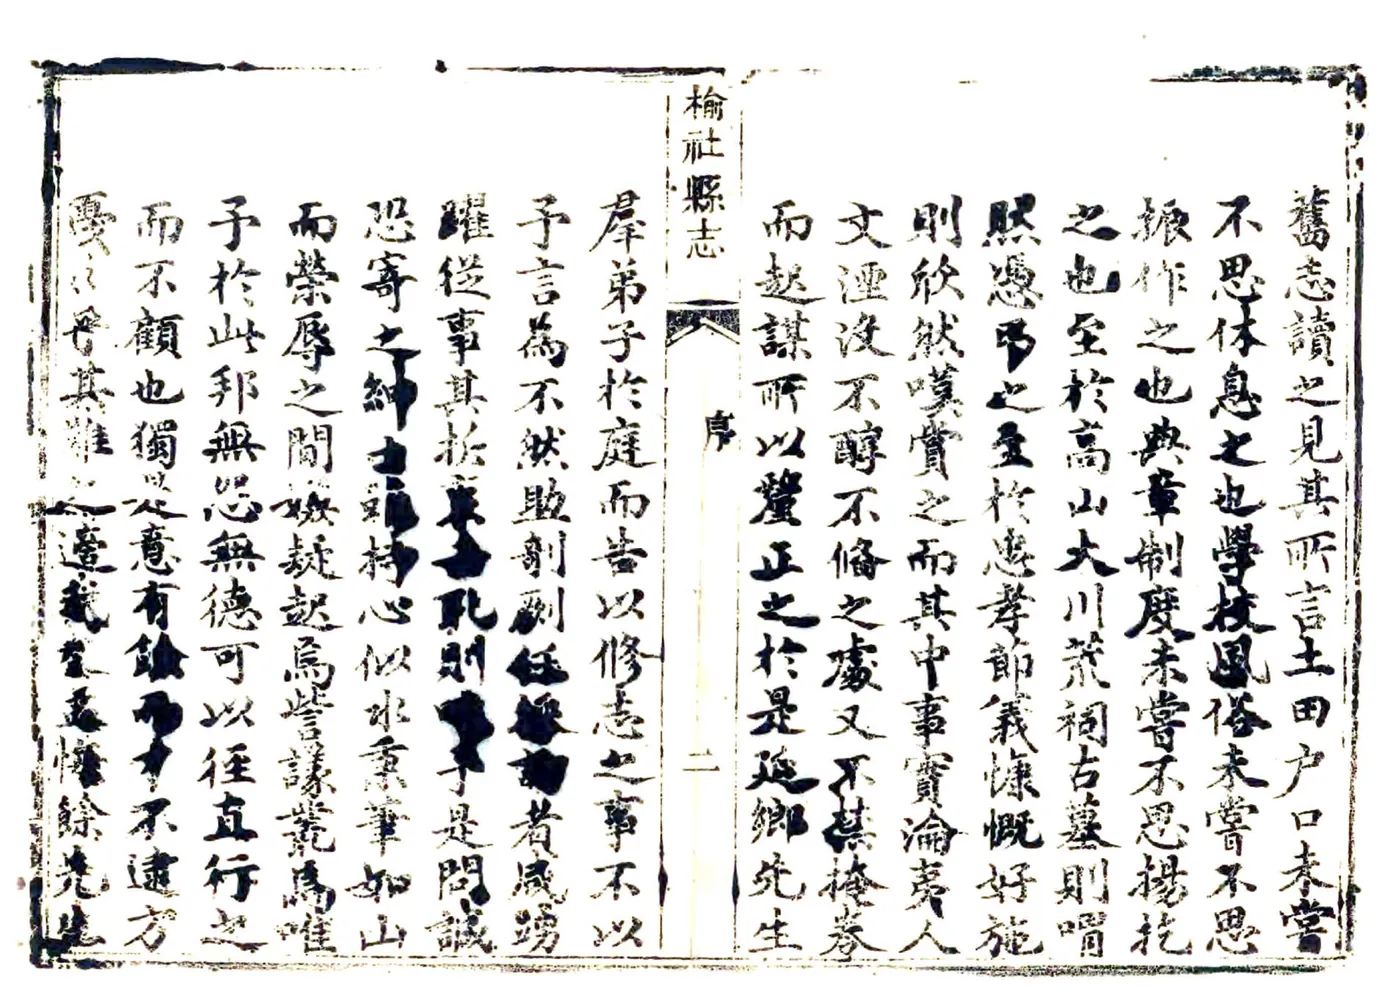 舊志讀之見其所言土田户口未嘗
不思休息之也學校風俗未嘗不思
振作之也典章制度未嘗不思揚扢
之也至於高山大川荒祠古墓則喟
然憑弔之至於忠孝節義慷慨好施
則欣然嘆賞之而其中事實淪夷人
文湮没不醇不偹之處又不禁掩卷
而起謀所以釐正之於是延鄉先生
榆社縣志
序
二
羣弟子於庭而告以修志之事不以
予言為不然助剞劂任採訪者咸踴
躍從事其於則于是問誠
恐寄之紳士持心似水秉筆如山
而榮辱之間嫌疑起焉訾議叢焉唯
予於此邦無怨無德可以徑直行之
而不顧也獨是意有餘而才不逮方
其難之憶餘先生